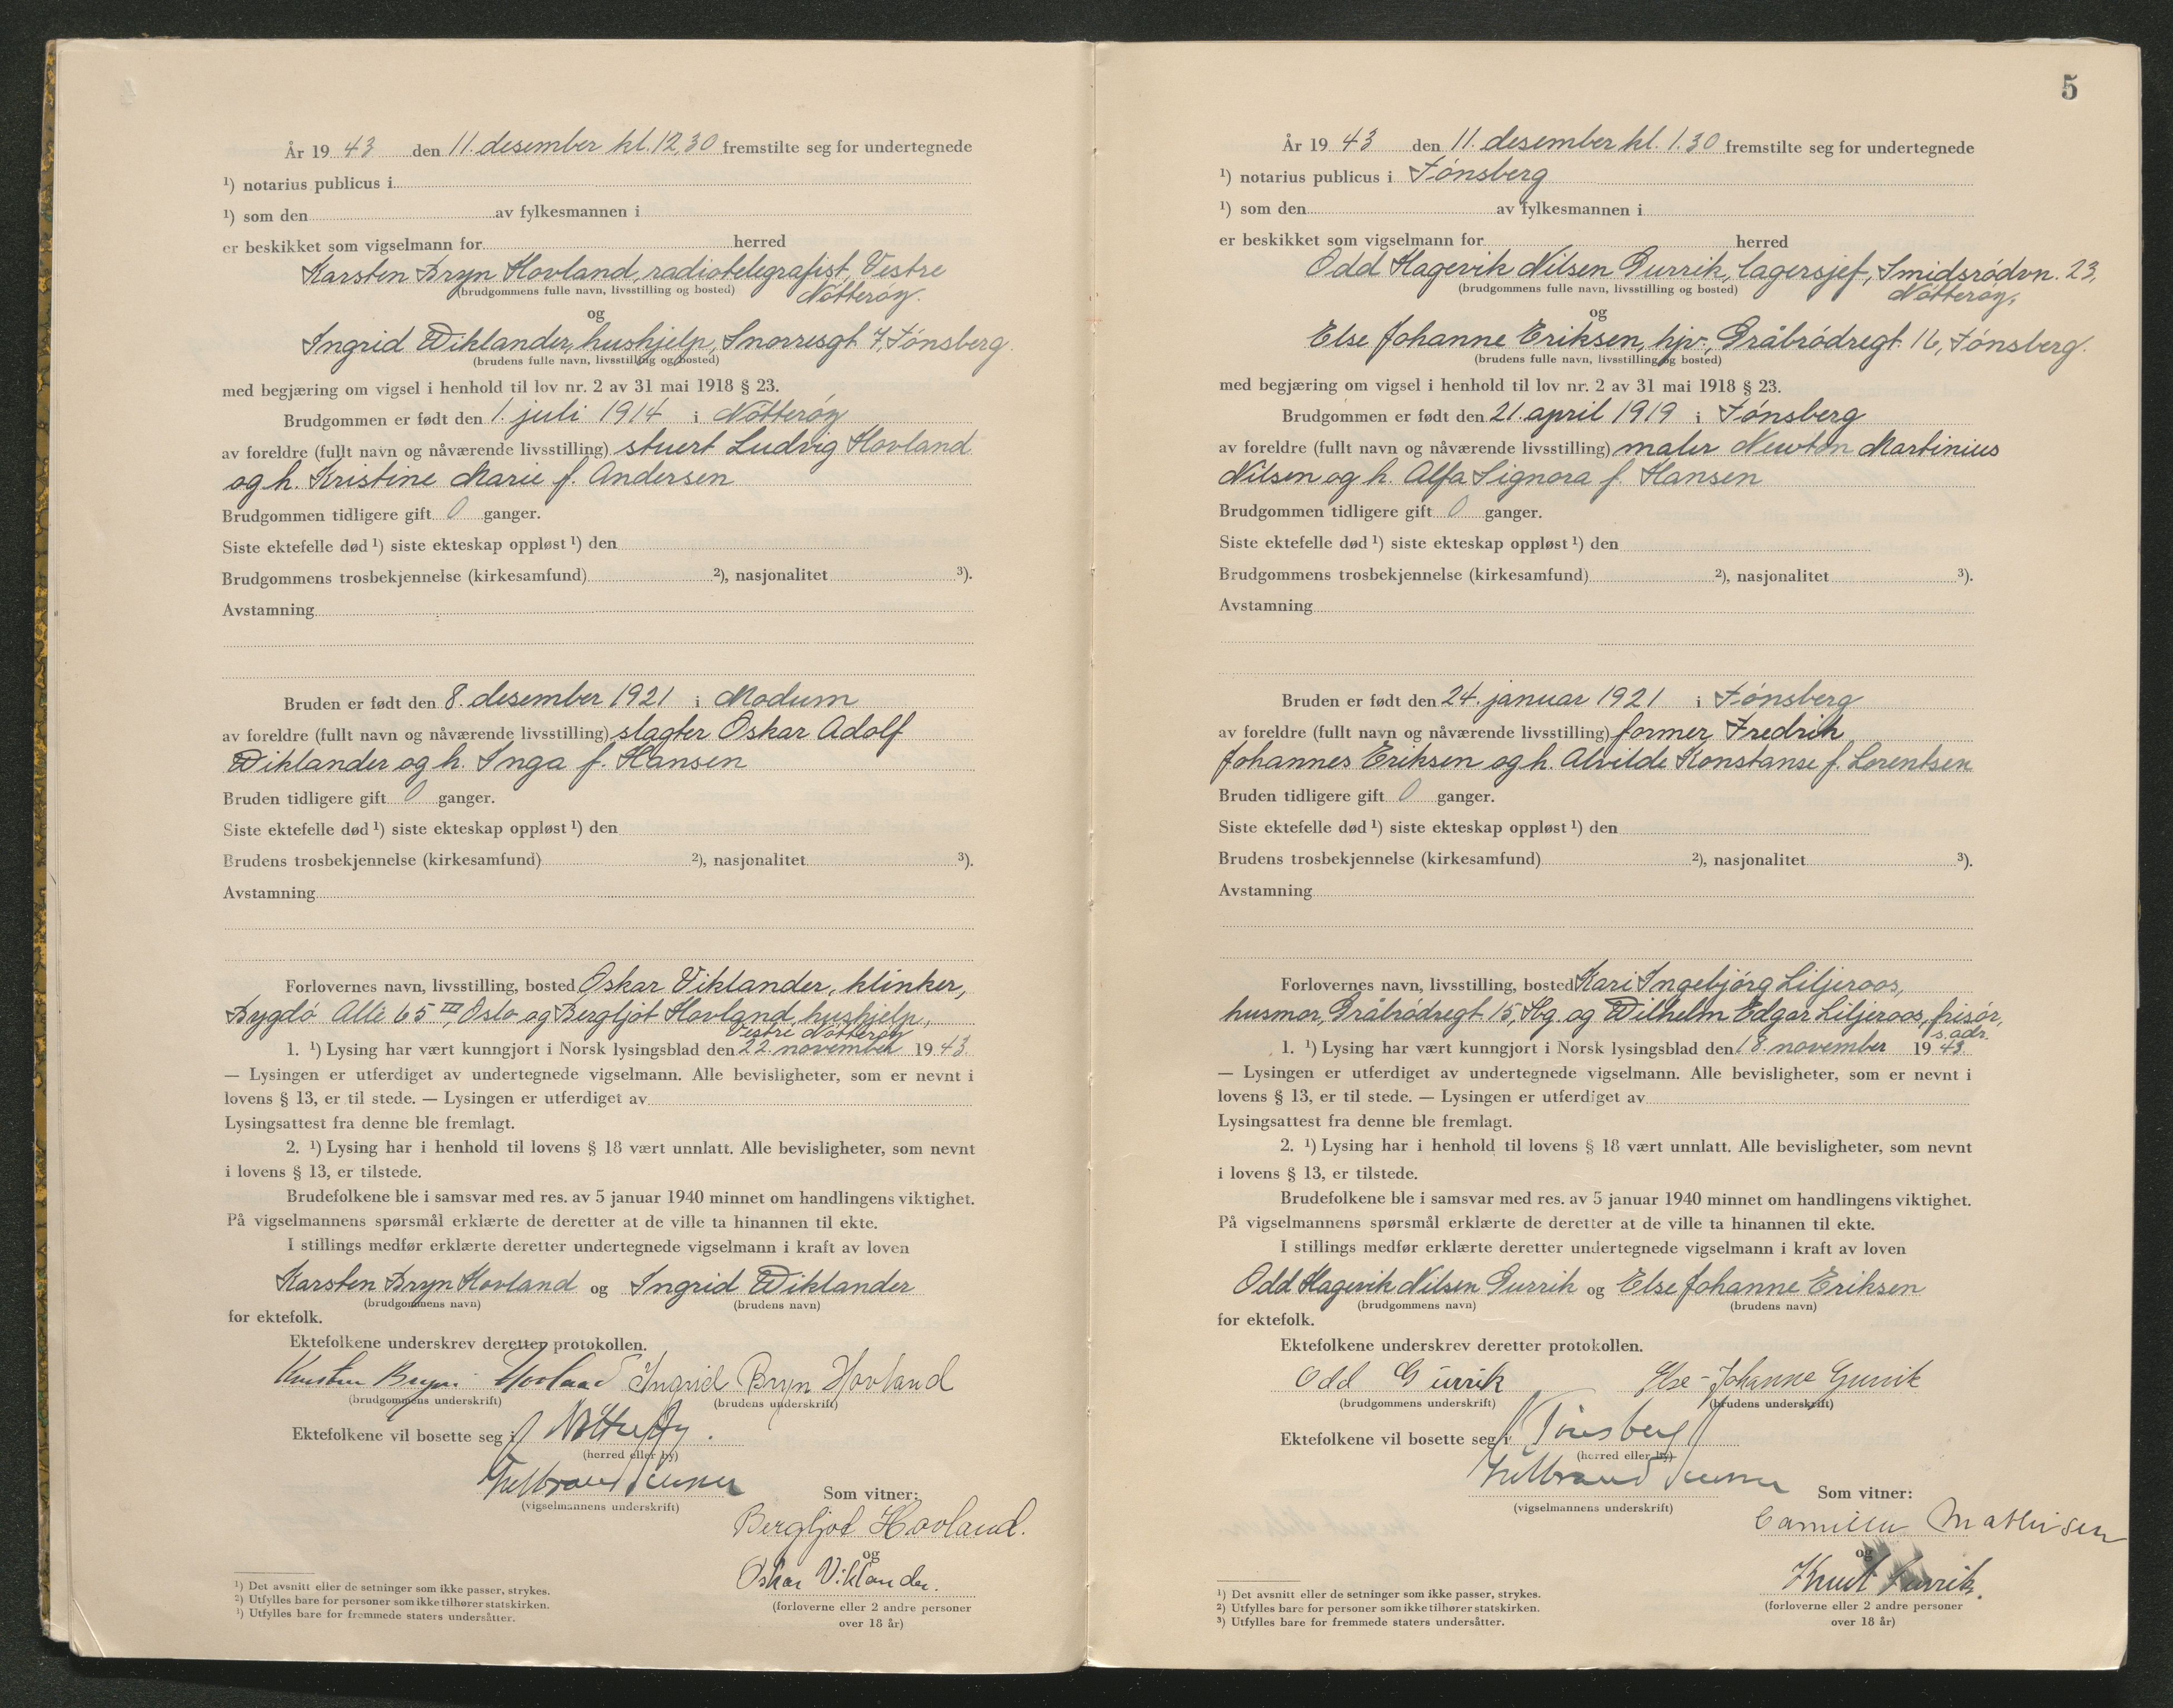 År 1943 den 11. desember kl. 12,30 fremstilte seg for undertegnede
¹) notarius publicus i
¹) som den av fylkesmannen i
er beskikket som vigselmann for herred
Karsten Bryn Hovland, radiotelegrafist, Vestre
(brudgommens fulle navn, livsstilling og bosted) Nötteröy.
og
Ingrid Wiklander, hushjelp, Snorresgt 7, Tönsberg.
(brudens fulle navn, livsstilling og bosted)
med begjæring om vigsel i henhold til lov nr. 2 av 31 mai 1918 § 23.
Brudgommen er født den 1. juli 1914 i Nötteröy
av foreldre (fullt navn og nåværende livsstilling) stuert Ludvig Hovland
og h. Kristine Marie f. Andersen
Brudgommen tidligere gift 0 ganger.
Siste ektefelle død ¹) siste ekteskap oppløst ¹) den
Brudgommens trosbekjennelse (kirkesamfund) ²), nasjonalitet ³).
Avstamning
Bruden er født den 8. desember 1921 i Modum
av foreldre (fullt navn og nåværende livsstilling) slagter Oskar Adolf
Wiklander og h. Inga f. Hansen
Bruden tidligere gift 0 ganger.
Siste ektefelle død ¹) siste ekteskap oppløst ¹) den
Brudens trosbekjennelse (kirkesamfund) ²), nasjonalitet ³).
Avstamning
Forlovernes navn, livsstilling, bosted Oskar Viklander, klinker,
Bygdö Allé 65 III, Oslo og Bergljot Hovland, hushjelp,
Vestre Nötteröy
1. ¹) Lysing har vært kunngjort i Norsk lysingsblad den 22. november 1943.
— Lysingen er utferdiget av undertegnede vigselmann. Alle bevisligheter, som er nevnt i
lovens § 13, er til stede. — Lysingen er utferdiget av
Lysingsattest fra denne ble fremlagt.
2. ¹) Lysing har i henhold til lovens § 18 vært unnlatt. Alle bevisligheter, som nevnt
i lovens § 13, er tilstede.
Brudefolkene ble i samsvar med res. av 5 januar 1940 minnet om handlingens viktighet.
På vigselmannens spørsmål erklærte de deretter at de ville ta hinannen til ekte.
I stillings medfør erklærte deretter undertegnede vigselmann i kraft av loven
Karsten Bryn Hovland og Ingrid Wiklander
(brudgommens navn) (brudens navn)
for ektefolk.
Ektefolkene underskrev deretter protokollen.
Karsten Bryn Hovland Ingrid Bryn Hovland
(brudgommens underskrift) (brudens underskrift)
Ektefolkene vil bosette seg i Nötteröy.
(herred eller by)
(vigselmannens underskrift)
Som vitner:
Bergljot Hovland.
og
Oskar Viklander.
(forloverne eller 2 andre personer
over 18 år)
¹) Det avsnitt eller de setninger som ikke passer, strykes.
²) Utfylles bare for personer som ikke tilhører statskirken.
³) Utfylles bare for fremmede staters undersåtter.
5
År 1943 den 11. desember kl. 1.30 fremstilte seg for undertegnede
¹) notarius publicus i Tönsberg
¹) som den av fylkesmannen i
er beskikket som vigselmann for herred
Odd Hagevik Nilsen Gurrik, lagersjef, Smidsrödvn. 23,
(brudgommens fulle navn, livsstilling og bosted) Nötteröy,
og
Else Johanne Eriksen, hjv., Gråbrödregt 16, Tönsberg.
(brudens fulle navn, livsstilling og bosted)
med begjæring om vigsel i henhold til lov nr. 2 av 31 mai 1918 § 23.
Brudgommen er født den 21. april 1919 i Tönsberg
av foreldre (fullt navn og nåværende livsstilling) maler Newton Martinius
Nilsen og h. Alfa Signora f. Hansen
Brudgommen tidligere gift 0 ganger.
Siste ektefelle død ¹) siste ekteskap oppløst ¹) den
Brudgommens trosbekjennelse (kirkesamfund) ²), nasjonalitet ³).
Avstamning
Bruden er født den 24. januar 1921 i Tönsberg
av foreldre (fullt navn og nåværende livsstilling) former Fredrik
Johannes Eriksen og h. Alvilde Konstanse f. Lorentsen
Bruden tidligere gift 0 ganger.
Siste ektefelle død ¹) siste ekteskap oppløst ¹) den
Brudens trosbekjennelse (kirkesamfund) ²), nasjonalitet ³).
Avstamning
Forlovernes navn, livsstilling, bosted Kari Ingebjörg Liljeroos,
husmor, Gråbrödregt 15, Tbg. og Wilhelm Edgar Liljeroos, frisör,
s. adr.
1. ¹) Lysing har vært kunngjort i Norsk lysingsblad den 18. november 1943.
— Lysingen er utferdiget av undertegnede vigselmann. Alle bevisligheter, som er nevnt i
lovens § 13, er til stede. — Lysingen er utferdiget av
Lysingsattest fra denne ble fremlagt.
2. ¹) Lysing har i henhold til lovens § 18 vært unnlatt. Alle bevisligheter, som nevnt
i lovens § 13, er tilstede.
Brudefolkene ble i samsvar med res. av 5 januar 1940 minnet om handlingens viktighet.
På vigselmannens spørsmål erklærte de deretter at de ville ta hinannen til ekte.
I stillings medfør erklærte deretter undertegnede vigselmann i kraft av loven
Odd Hagevik Nilsen Gurrik og Else Johanne Eriksen
(brudgommens navn) (brudens navn)
for ektefolk.
Ektefolkene underskrev deretter protokollen.
Odd Gurrik Else-Johanne Gurrik
(brudgommens underskrift) (brudens underskrift)
Ektefolkene vil bosette seg i Tönsberg
(herred eller by)
(vigselmannens underskrift)
Som vitner:
Camilla Mathisen
og
Knut Gurrik.
(forloverne eller 2 andre personer
over 18 år)
¹) Det avsnitt eller de setninger som ikke passer, strykes.
²) Utfylles bare for personer som ikke tilhører statskirken.
³) Utfylles bare for fremmede staters undersåtter.